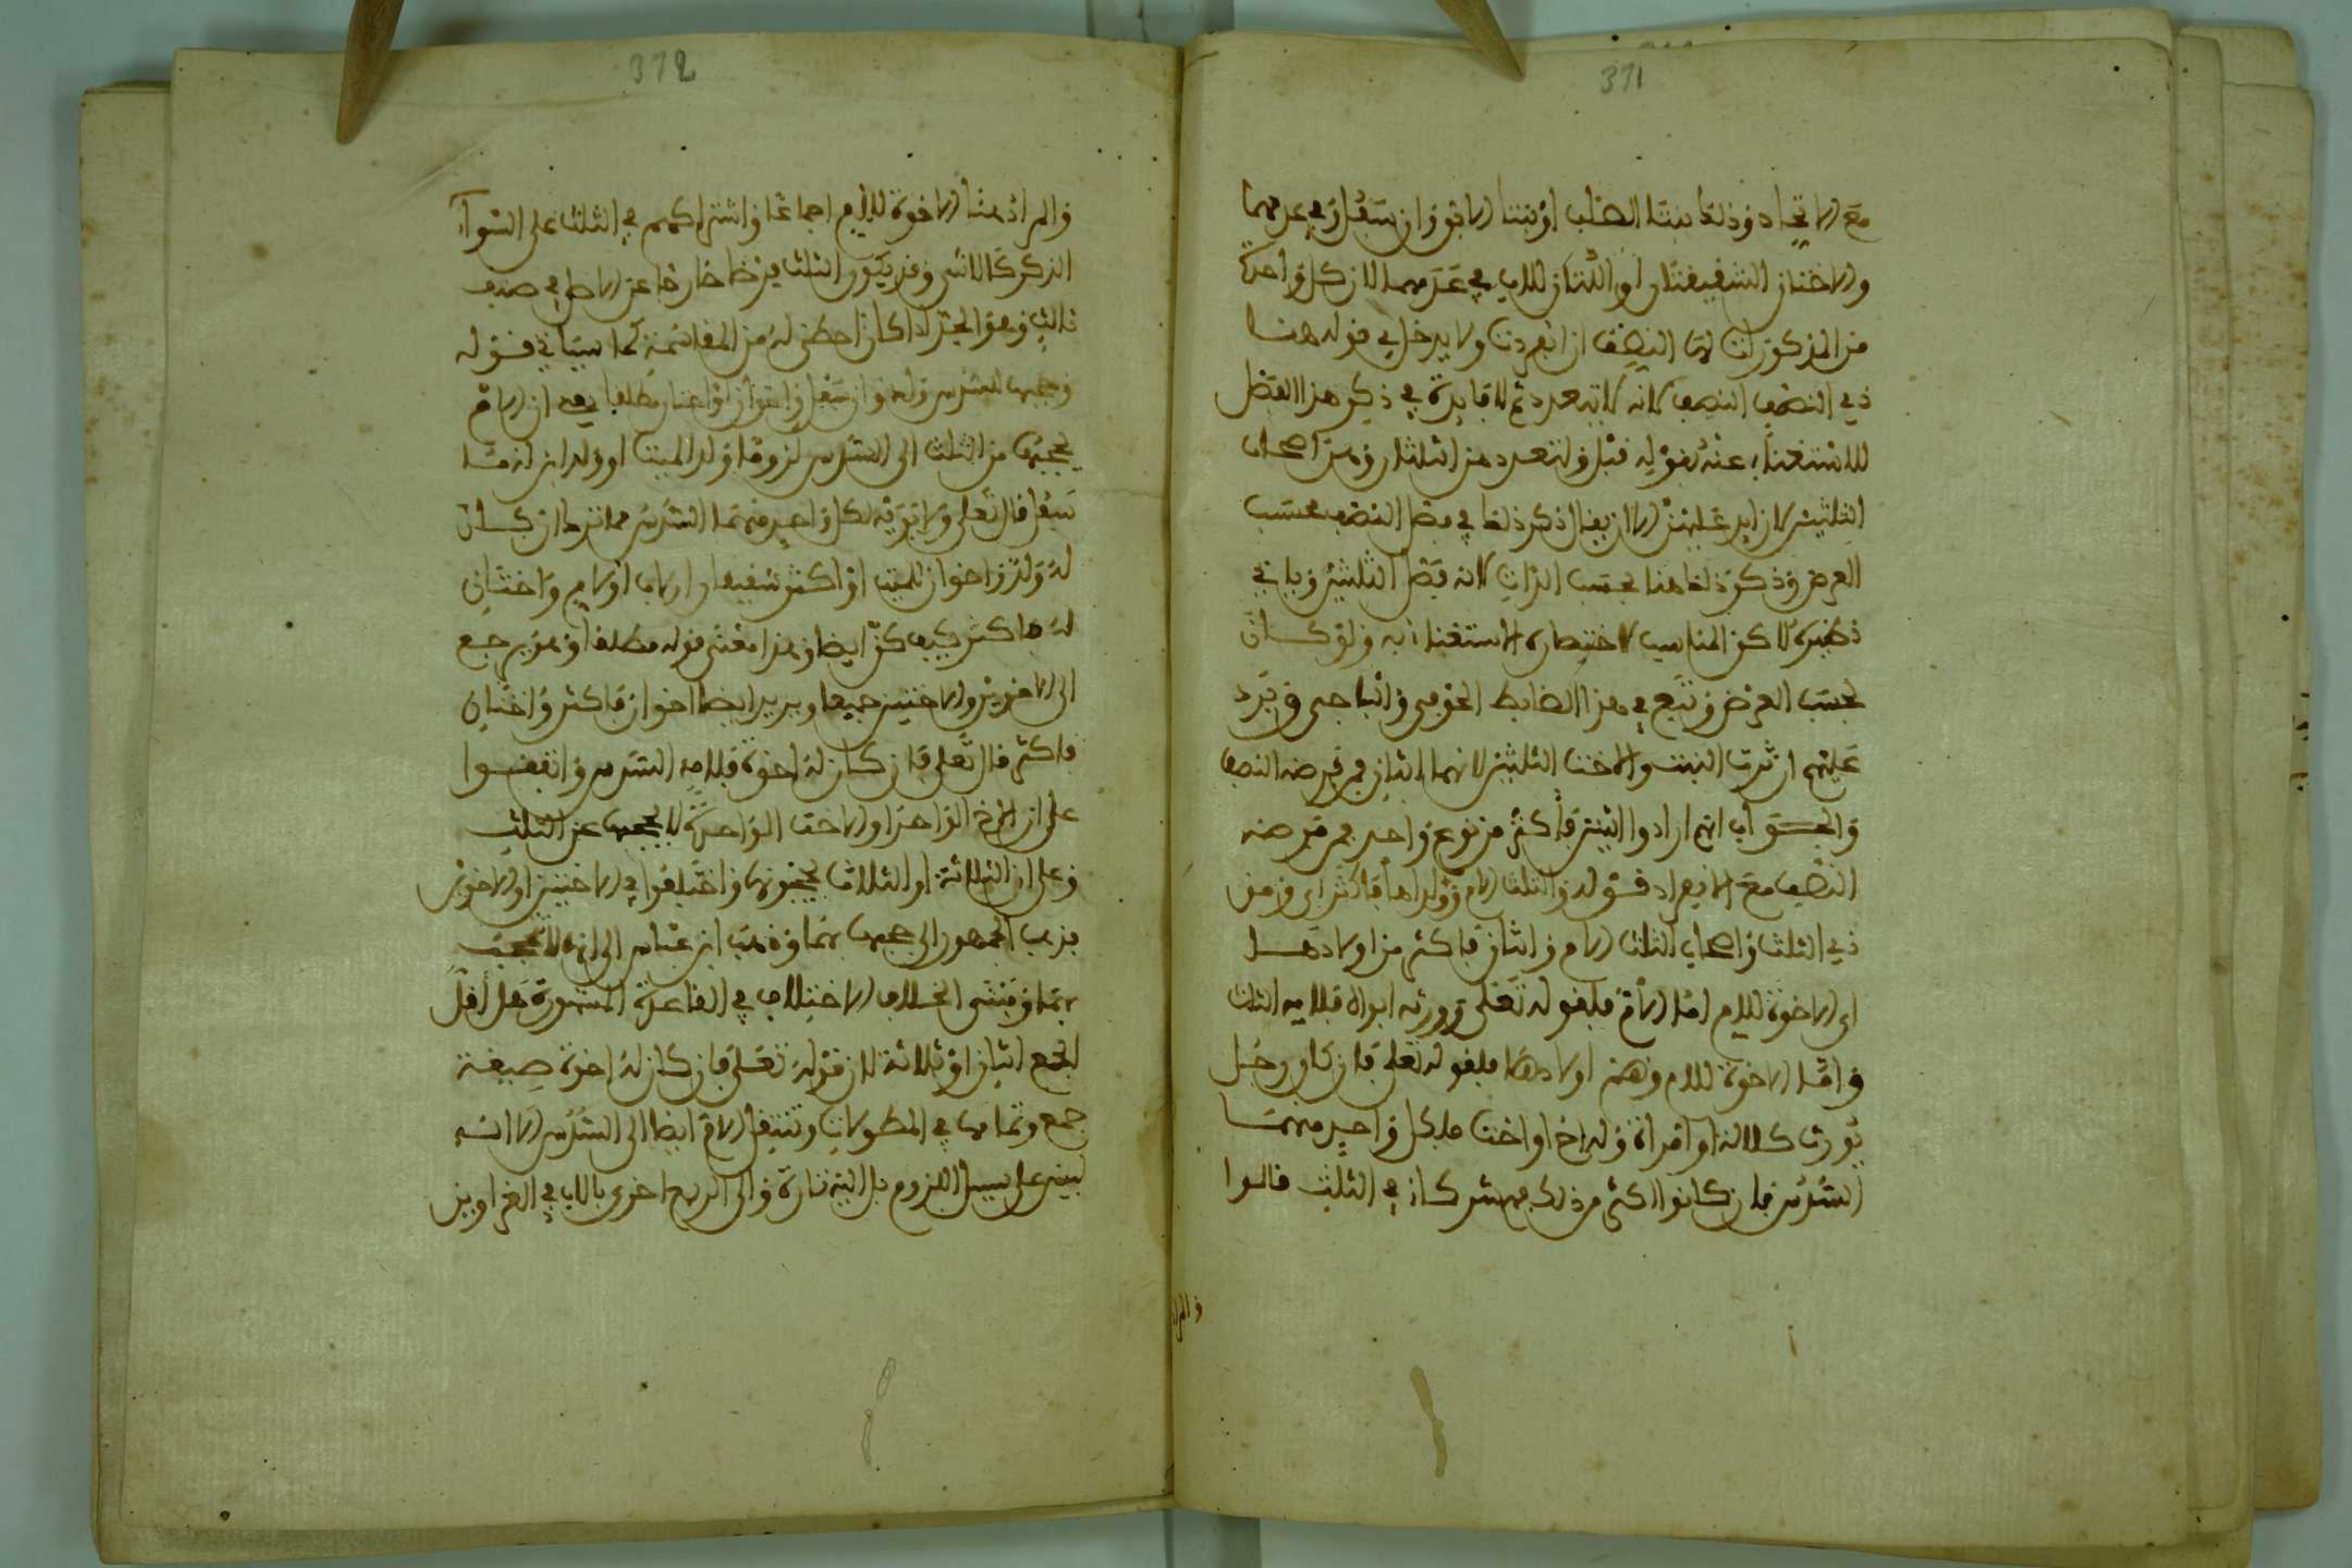 371
مع الاتحاد وذلك بنتا الصلب او بنتا الابن وان سفل في عدمهما
والاختان الشقيقتان او اللتان للاب في عدمهما لان كل واحدة
من المذكورات لها النصف ان انفردت ولا يدخل في قوله هنا
ذي النصف النصف لانه لا يتعدد ثم لا فايدة في ذكر هذا الفصل
للاستغناء عنه بقوله قبل ولتعدد من الثلثان وهن اصحاب
الثلثين لا زايد عليهن الا ان يقال ذكر ذلك في فصل النصف بحسب
العرض وذكر ذلك هنا بحسب الذات لانه فصل الثلثين وياتي
نظيره لاكن المناسب لاختصاره الاستغناء به ولو كان
بحسب العرض وتبع في هذا الضابط الحوفي والباجي ويرد
عليهم ان ترث البنت والاخت الثلثين لانهما اثنان ممن فرضه النصف
والجواب انهم ارادوا اثنين فاكثر من نوع واحد ممن فرضه
النصف مع الانفراد قوله والثلث الام وولداها فاكثر اي ومن
ذي الثلث واصحاب الثلث الام واثنان فاكثر من اولادها
اي الاخوة للام اما الام فلقوله تعلى وورثه ابواه فلامه الثلث
واما الاخوة للام وهم اولادها فلقوله تعلى فان كان رجل
يورث كلالة او امراة وله اخ او اخت فلكل واحد منهما
السدس فان كانوا اكثر من ذلك فهم شركاء في الثلث قالوا
والمراد
372
والمراد هنا الاخوة للام اجماعا واشتراكهم في الثلث على السواء
الذكر كالانثى وقد يكون الثلث فرضا خارجا عن الاصل في صنف
ثالث وهو الجد اذا كان احظى له من المقاسمة كما سياتي قوله
وحجبها للسدس ولد وان سفل واخوان او اختان مطلقا يعني ان الام
يحجبها من الثلث الى السدس لزوما ولد الميت او ولد ابنه مهما
سفل قال تعلى ولابويه لكل واحد منهما السدس مما ترك ان كان
له ولد واخوان للميت او اكثر شقيقان او لاب او لام واختان
له فاكثر كيف كن ايضا وهذا معنى قوله مطلقا وهو يرجع
الى الاخوين والاختين جميعا ويريد ايضا اخوان فاكثر واختان
فاكثر قال تعلى فان كان له اخوة فلامه السدس واتفقوا
على ان الاخ الواحد او الاخت الواحدة لا يحجبها عن الثلث
وعلى ان الثلاثة او الثلاث يحجبونها واختلفوا في الاختين او الاخوين
فذهب الجمهور الى حجبها بهما وذهب ابن عباس الى انها لا تحجب
بهما ومنشى الخلاف الاختلاف في القاعدة المشهورة هل اقل
الجمع اثنان او ثلاثة لان قوله تعلى فان كان له اخوة صيغة
جمع وتمامها في المطولات وتنتقل الام ايضا الى السدس الا انه
ليس على سبيل اللزوم بل اليه تارة والى الربع اخرى بالاب في الغراوين